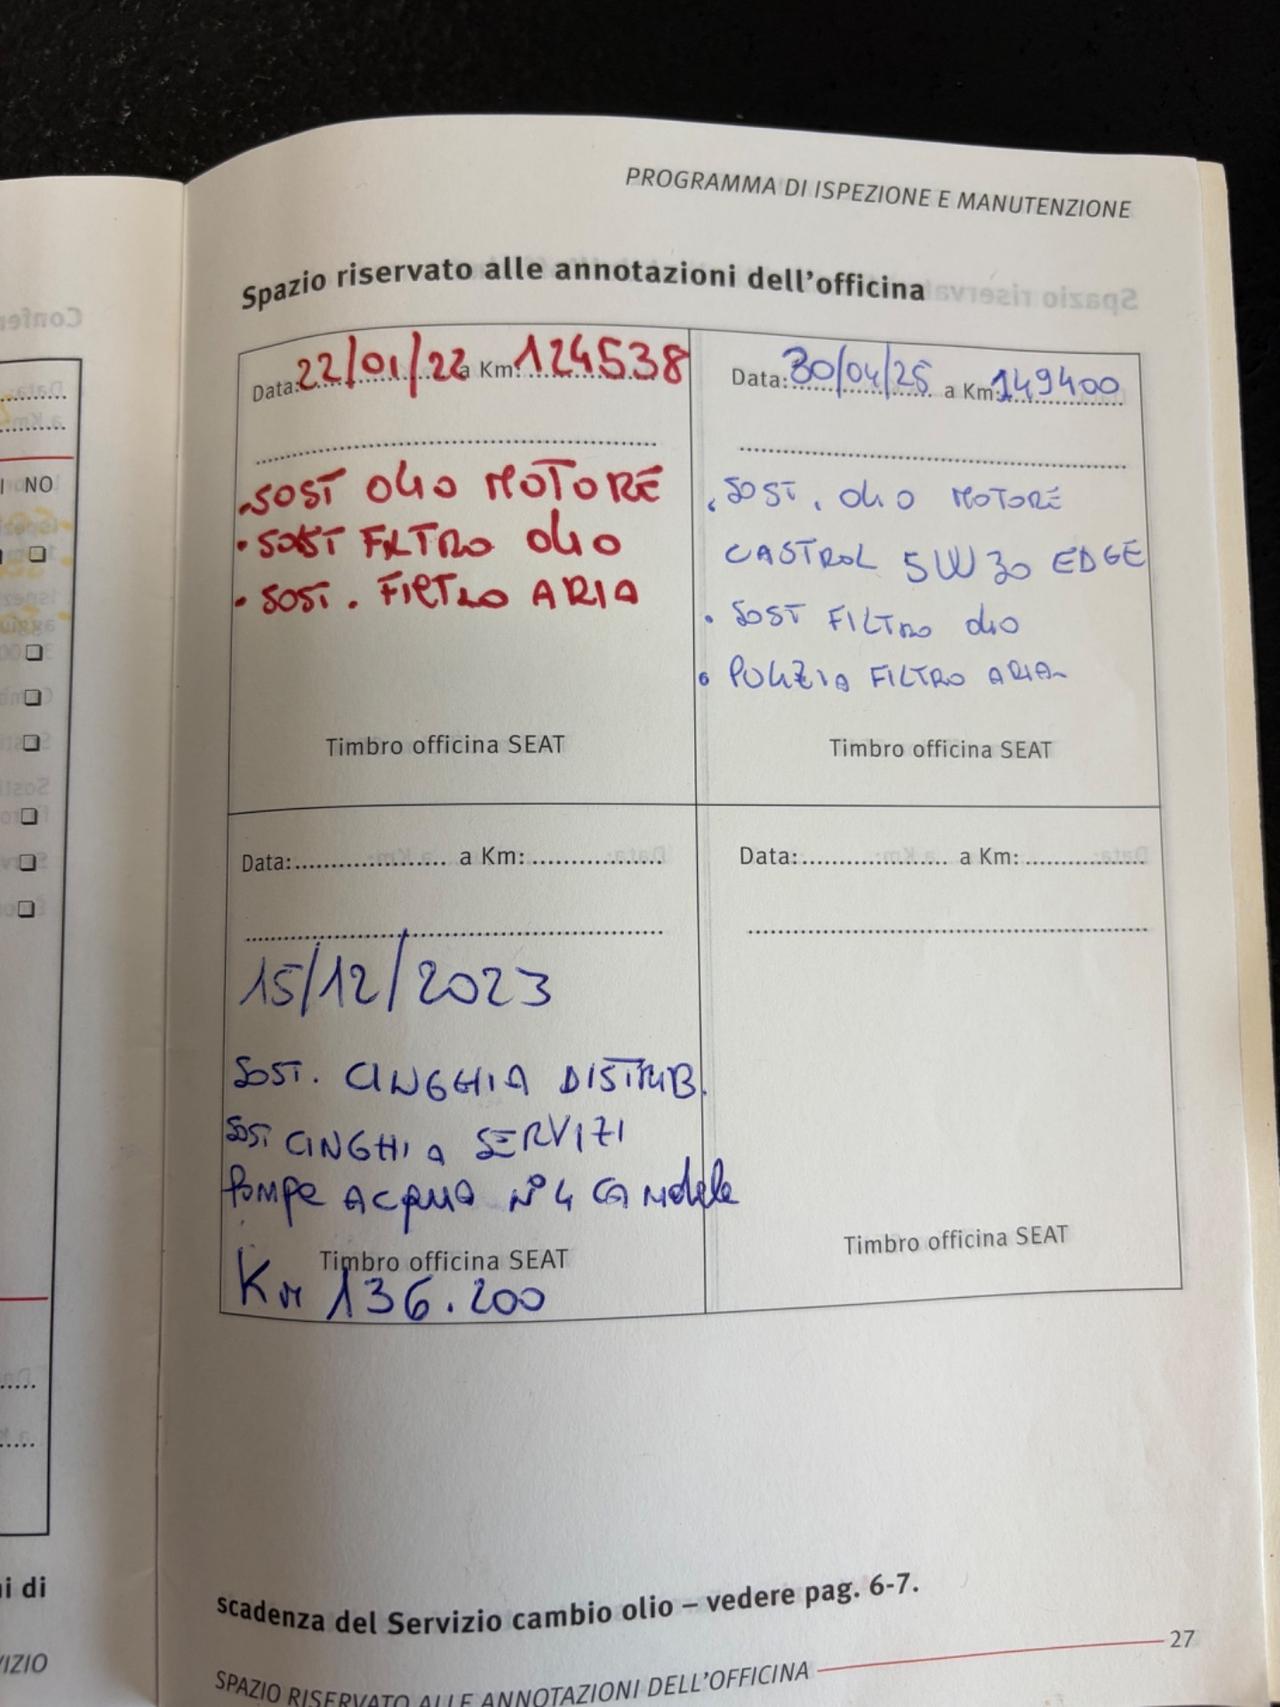 PROGRAMMA DI ISPEZIONE E MANUTENZIONE
Spazio riservato alle annotazioni dell'officina
Data: 22/01/22 a Km: 124538
• SOST OLIO MOTORE
• SOST FILTRO OLIO
• SOST. FILTRO ARIA
Timbro officina SEAT
Data: 30/04/25 a Km: 149400
• SOST. OLIO MOTORE
CASTROL 5W30 EDGE
• SOST FILTRO OLIO
• PULIZIA FILTRO ARIA
Timbro officina SEAT
Data: a Km:
15/12/2023
SOST. CINGHIA DISTRIB.
SOST CINGHIA SERVIZI
Pompe ACQUA N°4 CANdele
Timbro officina SEAT
Km 136.200
Data: a Km:
Timbro officina SEAT
scadenza del Servizio cambio olio – vedere pag. 6-7.
27
SPAZIO RISERVATO ALLE ANNOTAZIONI DELL'OFFICINA
NO